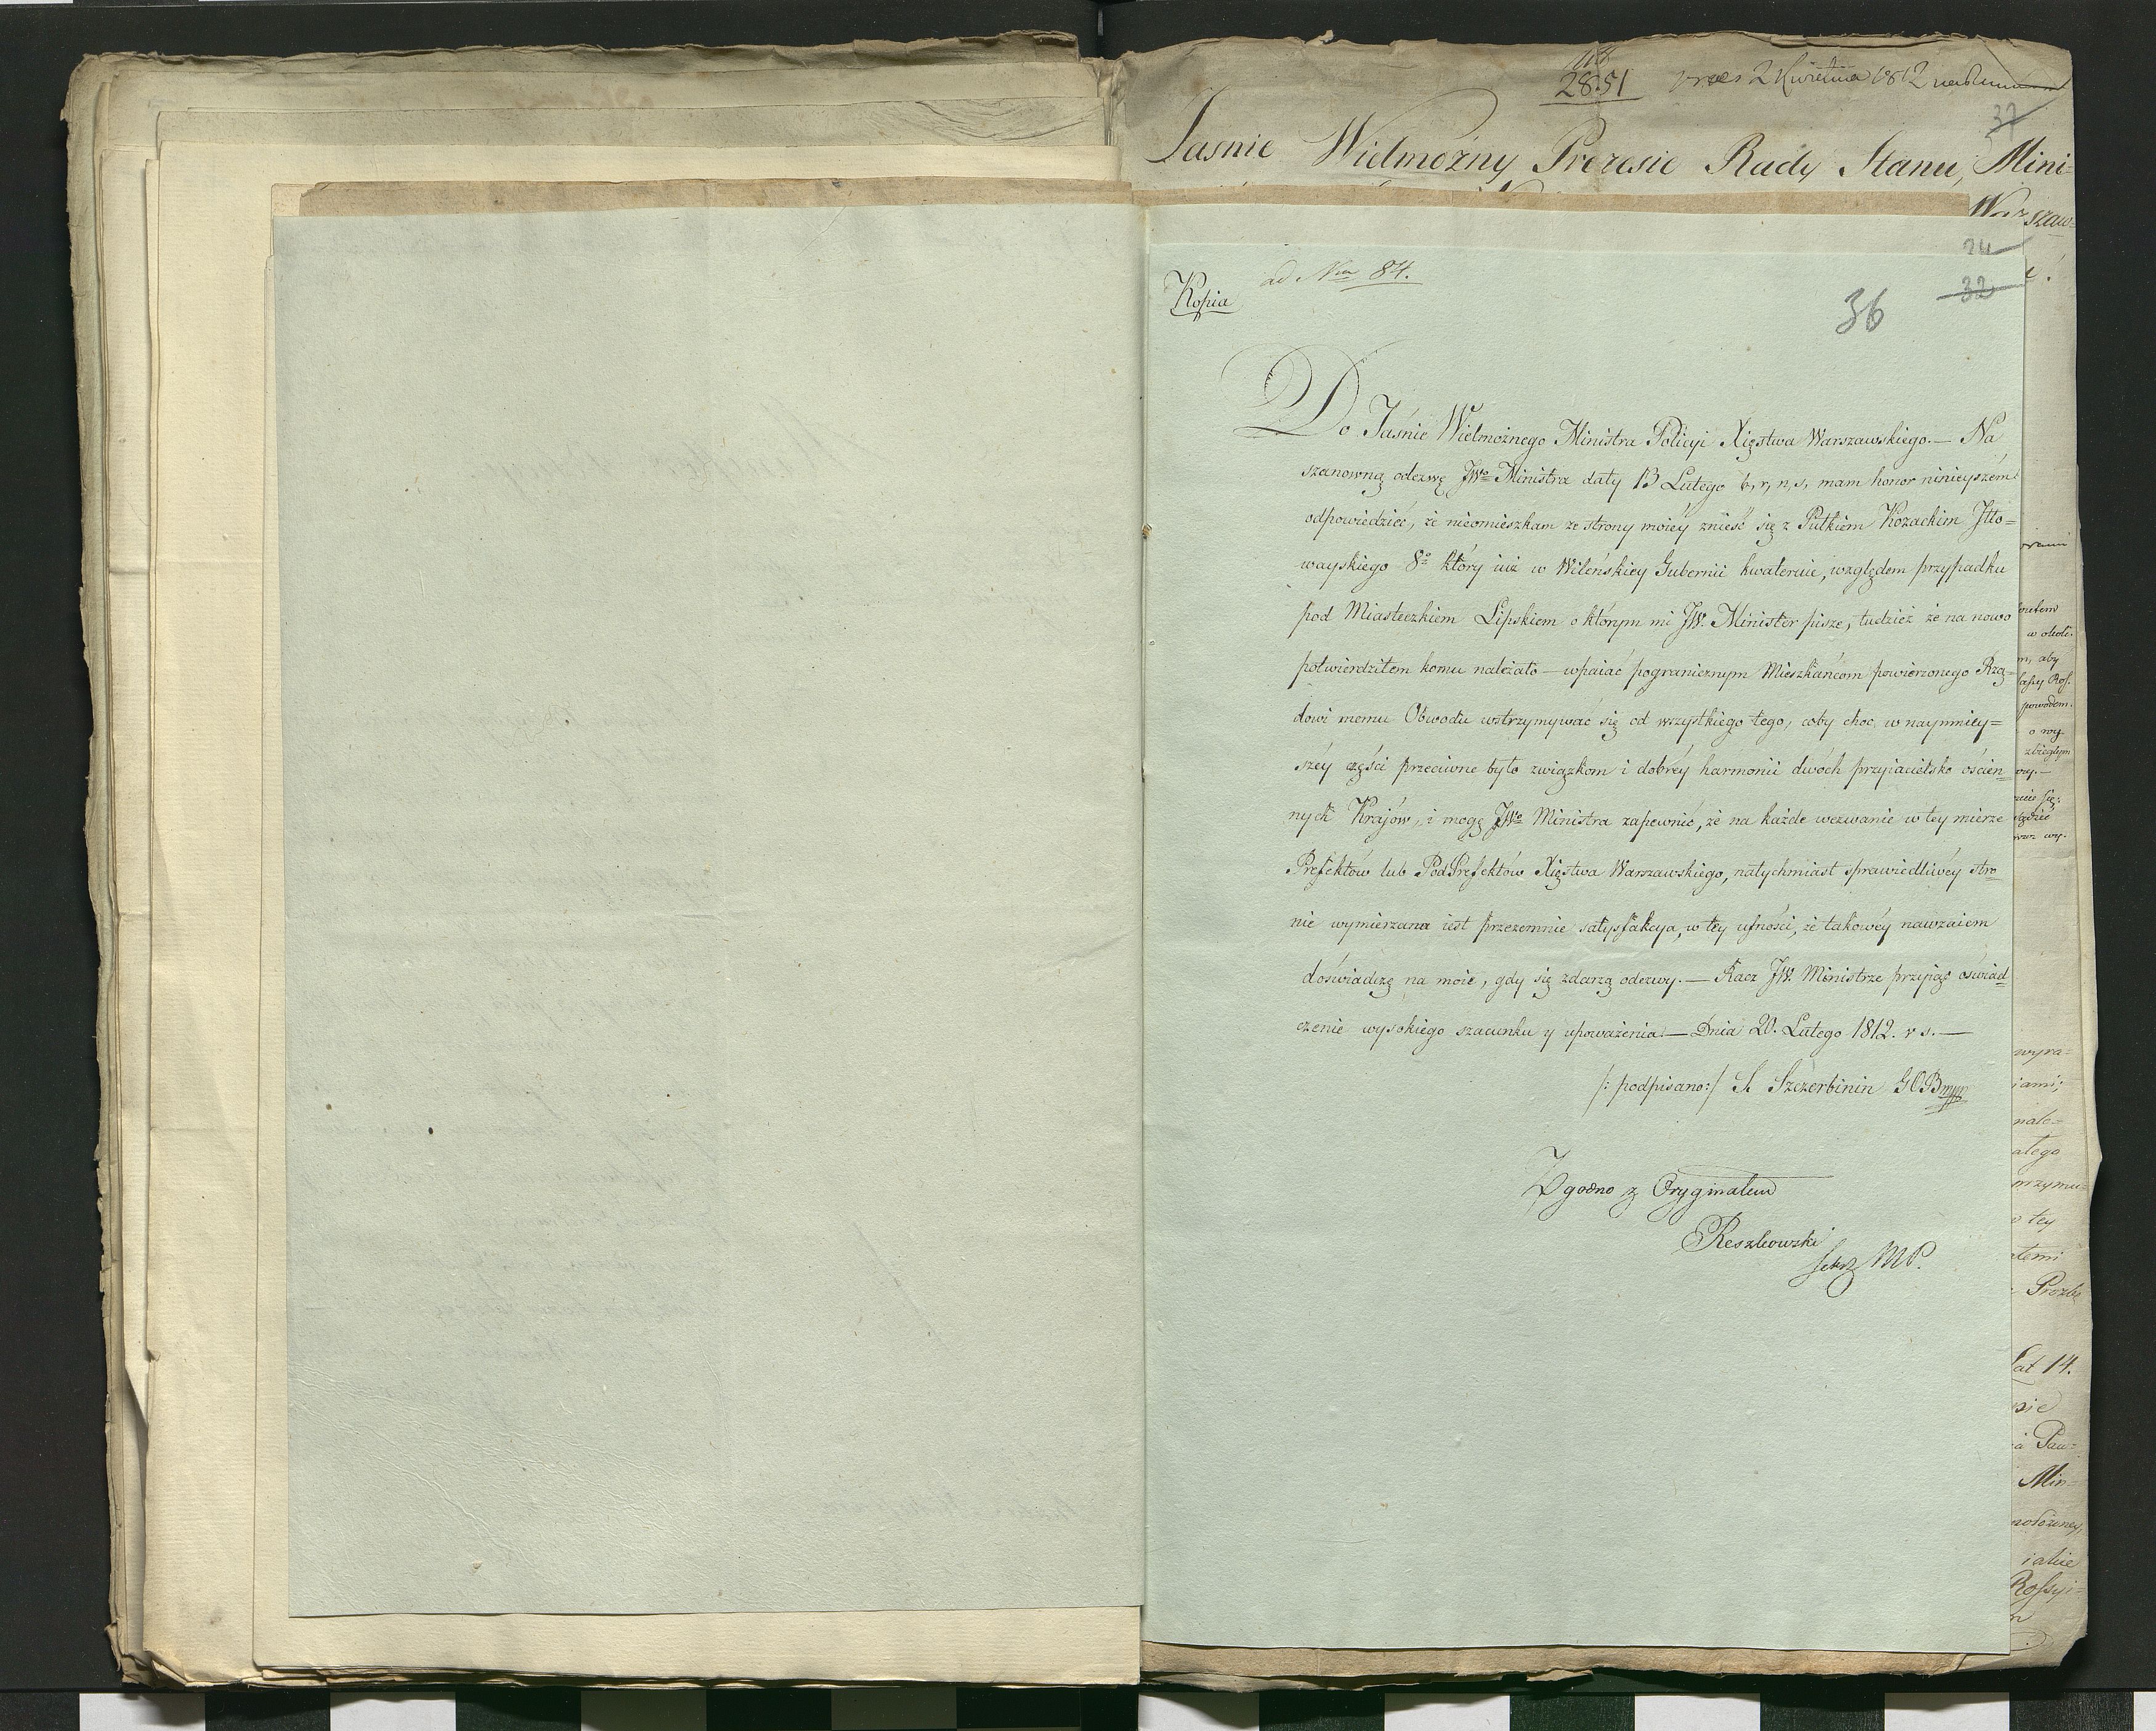 2851
2 Kwietnia 1812
37
Jasnie Wielmożny Prezesie Rady Stanu, Mini-
Warszaw-
24
32
36
Kopia
ad Nrum 84.
Do Jaśnie Wielmożnego Ministra Policyi Xięstwa Warszawskiego. — Na
szanowną odezwę JWo Ministra daty 13 Lutego b, r, n, s, mam honor ninieyszém
odpowiedzieć, że nieomieszkam ze strony moiéy znieść się z Pułkiem Kozackim Jłło=
wayskiego 8o który iuż w Wileńskiey Gubernii kwateruie, względem przypadku
pod Miasteczkiem Lipskiem o którym mi JW. Minister pisze, tudzież że na nowo
potwierdziłem komu należało — wpaiać pogranicznym Mieszkańcom powierzonego Rzą=
dowi memu Obwodu wstrzymywać się od wszystkiego tego, coby choc w naymniey=
széy części przeciwne było związkom i dobréy harmonii dwóch przyiacielsko ościen=
nych Krajów, i mogę JWo Ministra zapewnić, że na każde wezwanie w tey mierze
Prefektów lub PodPrefektów Xięstwa Warszawskiego, natychmiast sprawiedliwéy stro=
nie wymierzana iest przezemnie satysfakcya, w téy ufności, że takowéy nawzaiem
doświadczę na moie, gdy się zdarzą odezwy. — Racz JW. Ministrze przyjąć oświad=
czenie wysokiego szacunku y upoważenia — Dnia 20. Lutego 1812. r s. —
/: podpisano:/ S. Szczerbinin GOB
Zgodno z Oryginałem
Reszkowski
Sekrz MP.
w okoli-
m, aby
powodem.
o wy
zbiegłym
wyra=
iami;
nale=
ałego
przymu=
tey
Prozbę
Lat 14.
Pau=
Min=
iakie
Rossyi=